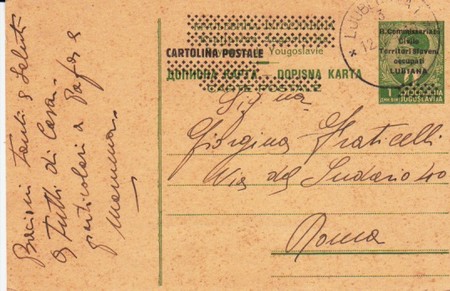 R. Commissariato
Civile
Territori Sloveni
occupati
LUBIANA
CARTOLINA POSTALE Yougoslavie
ДОПИСНА КАРТА - DOPISNA KARTA
CARTE POSTALE
1
JUGOSLAVIJA
LJUBLJANA
12
Sig.na
Giorgina Fraticelli
Via del Sudario 40
Roma
Bacioni tanti e saluti
a tutti di casa.
particolari a Papà e
Mamma.